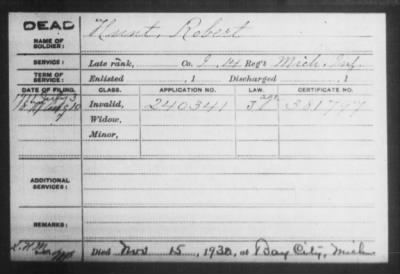 DEAD
NAME OF SOLDIER:
Hunt, Robert
SERVICE:
Late rank, Co. I, 14 Reg't Mich. Inf.
TERM OF SERVICE:
Enlisted , 1 Discharged , 1
DATE OF FILING. CLASS. APPLICATION NO. LAW. CERTIFICATE NO.
Invalid, 240341
Widow,
Minor,
ADDITIONAL SERVICES:
REMARKS:
Died Nov 15, 1930, at Bay City, Mich